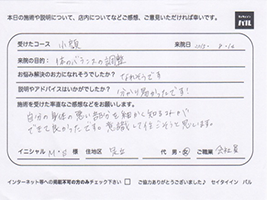 本日の施術や説明について、店内についてなどご感想、ご意見いただければ幸いです。
バル
受けたコース 小顔 来院日 2013・8・26
来院の目的: 体のバランスの調整
お悩み解決のお力になれそうでしたか? なれそうです
説明やアドバイスはいかがでしたか? 分かり易かったです!
施術を受けた率直なご感想などをお願いします。
自分の身体の悪い部分を細かく知る事が
できて良かったです。意識して行こうと思います。
イニシャル M・N 様 住地区 代 男・女 ご職業 会社員
インターネット等への掲載不可の方のみチェック下さい □ ご協力ありがとうございました♪ セイタイイン バル